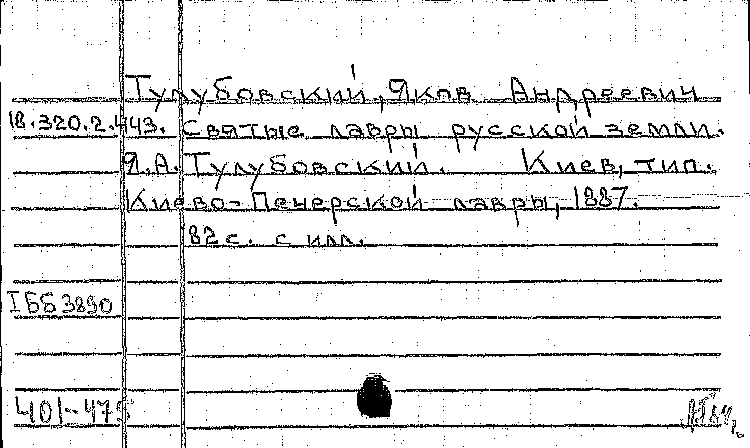 Тулубовский, Яков Андреевич
18.320.2.443. Святые лавры русской земли.
Я.А. Тулубовский. Киев, тип.
Киево-Печерской лавры, 1887.
82 с. с илл.
IББ 3890
401-475